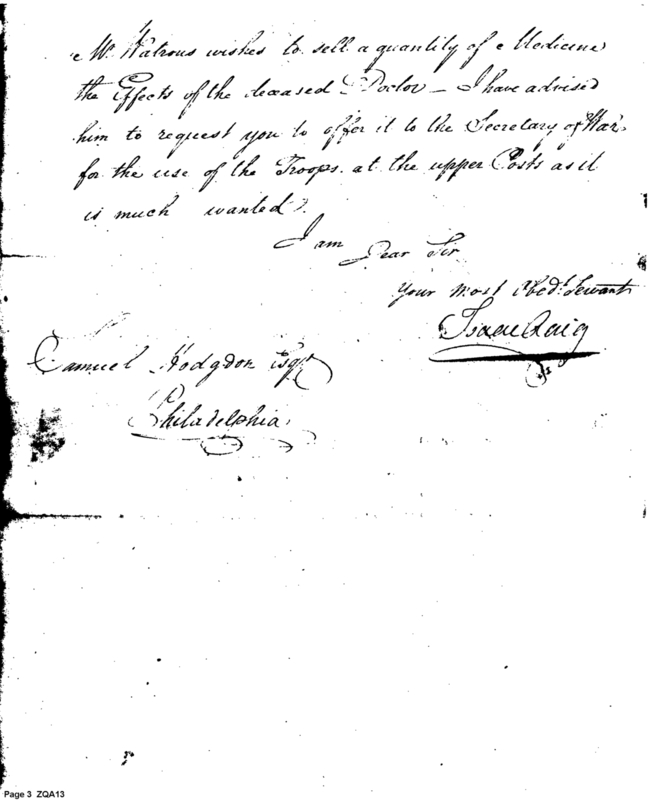 Mr. Watrous wishes to sell a quantity of Medicine
the Effects of the deceased Doctor — I have advised
him to request you to offer it to the Secretary of War
for the use of the Troops at the upper Posts as it
is much wanted.
I am
Dear Sir
Your most Obedt. Servant
Isaac Craig
Samuel Hodgdon Esqr.
Philadelphia
Page 3 ZQA13